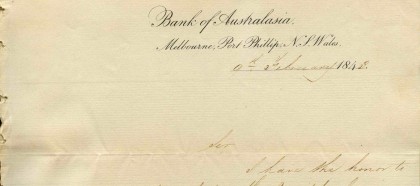 Bank of Australasia.
Melbourne, Port Phillip, N.S. Wales.
February 1848.
Sir
I have the honor to